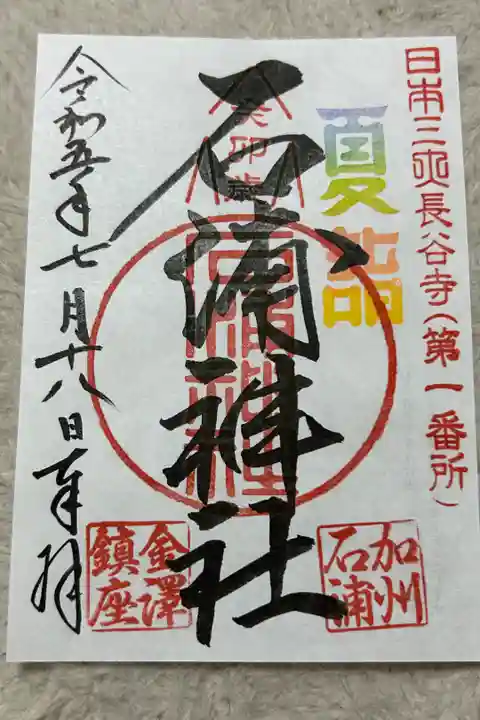 日本三大長谷寺（第一番所）
夏詣
癸卯歳
石浦神社
石浦神社
加州
石浦
金澤
鎮座
令和五年七月十八日奉拝